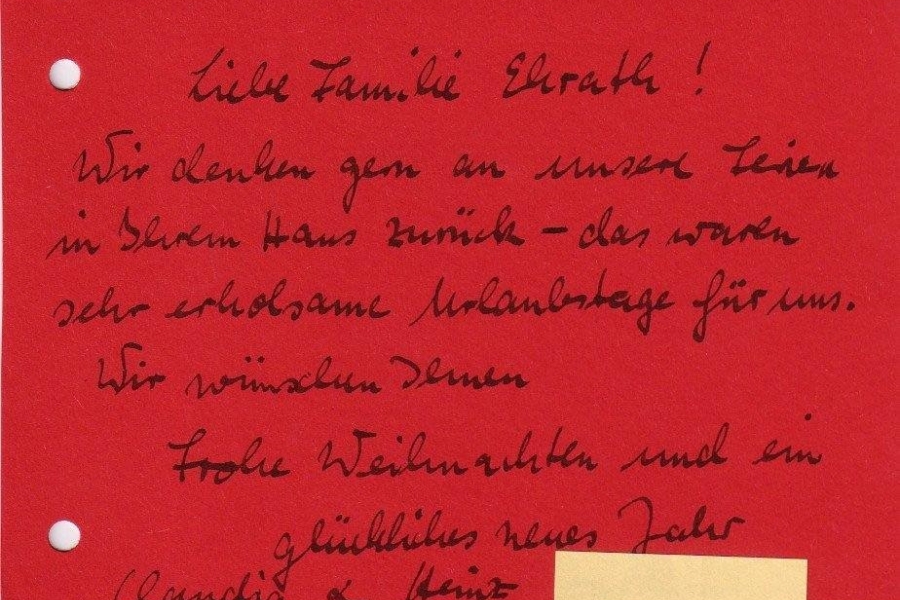 Liebe Familie Ehrath!
Wir denken gern an unsere Ferien
in Ihrem Haus zurück – das waren
sehr erholsame Urlaubstage für uns.
Wir wünschen Ihnen
Frohe Weihnachten und ein
glückliches neues Jahr
Claudia & Heinz